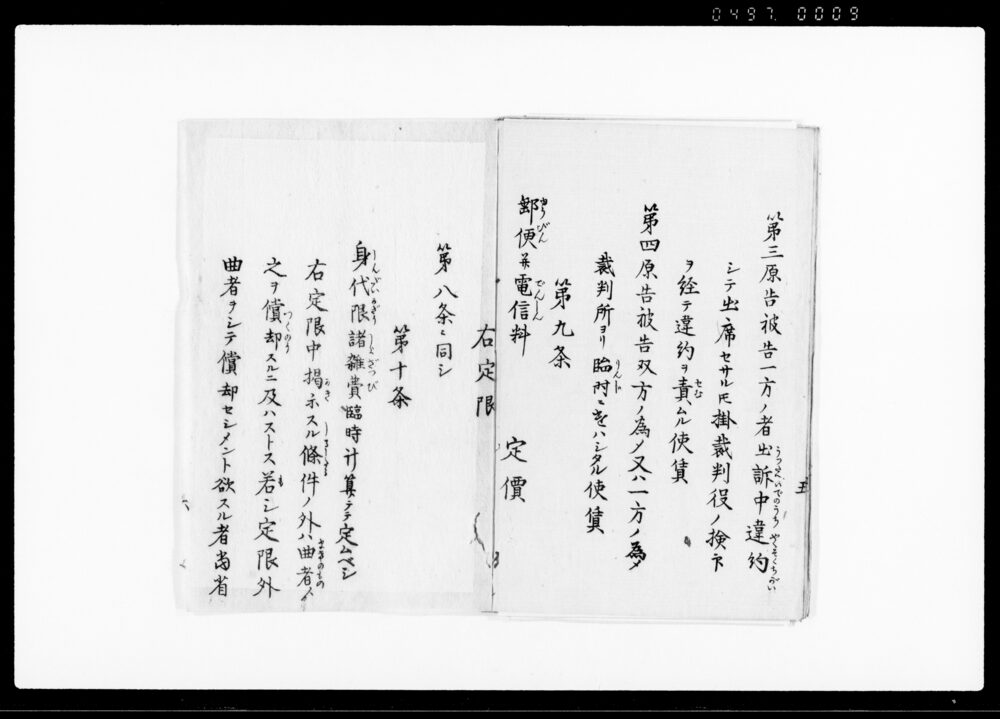 0497. 0009
第三原告被告一方ノ者出訴中違約
シテ出席セサル𪜈掛裁判役ノ検印
ヲ経テ違約ヲ責ムル使賃
第四原告被告双方ノ為メ又ハ一方ノ為メ
裁判所ヨリ臨時ニ走ハシタル使賃
第九条
郵便并電信料
定價
右定限
第八条ニ同シ
第十条
身代限諸雑費臨時計算シテ定ムベシ
右定限中掲示スル條件ノ外ハ曲者ヘ
之ヲ償却スルニ及ハストス若シ定限外
曲者ヲシテ償却セシメント欲スル者尚省
五
六